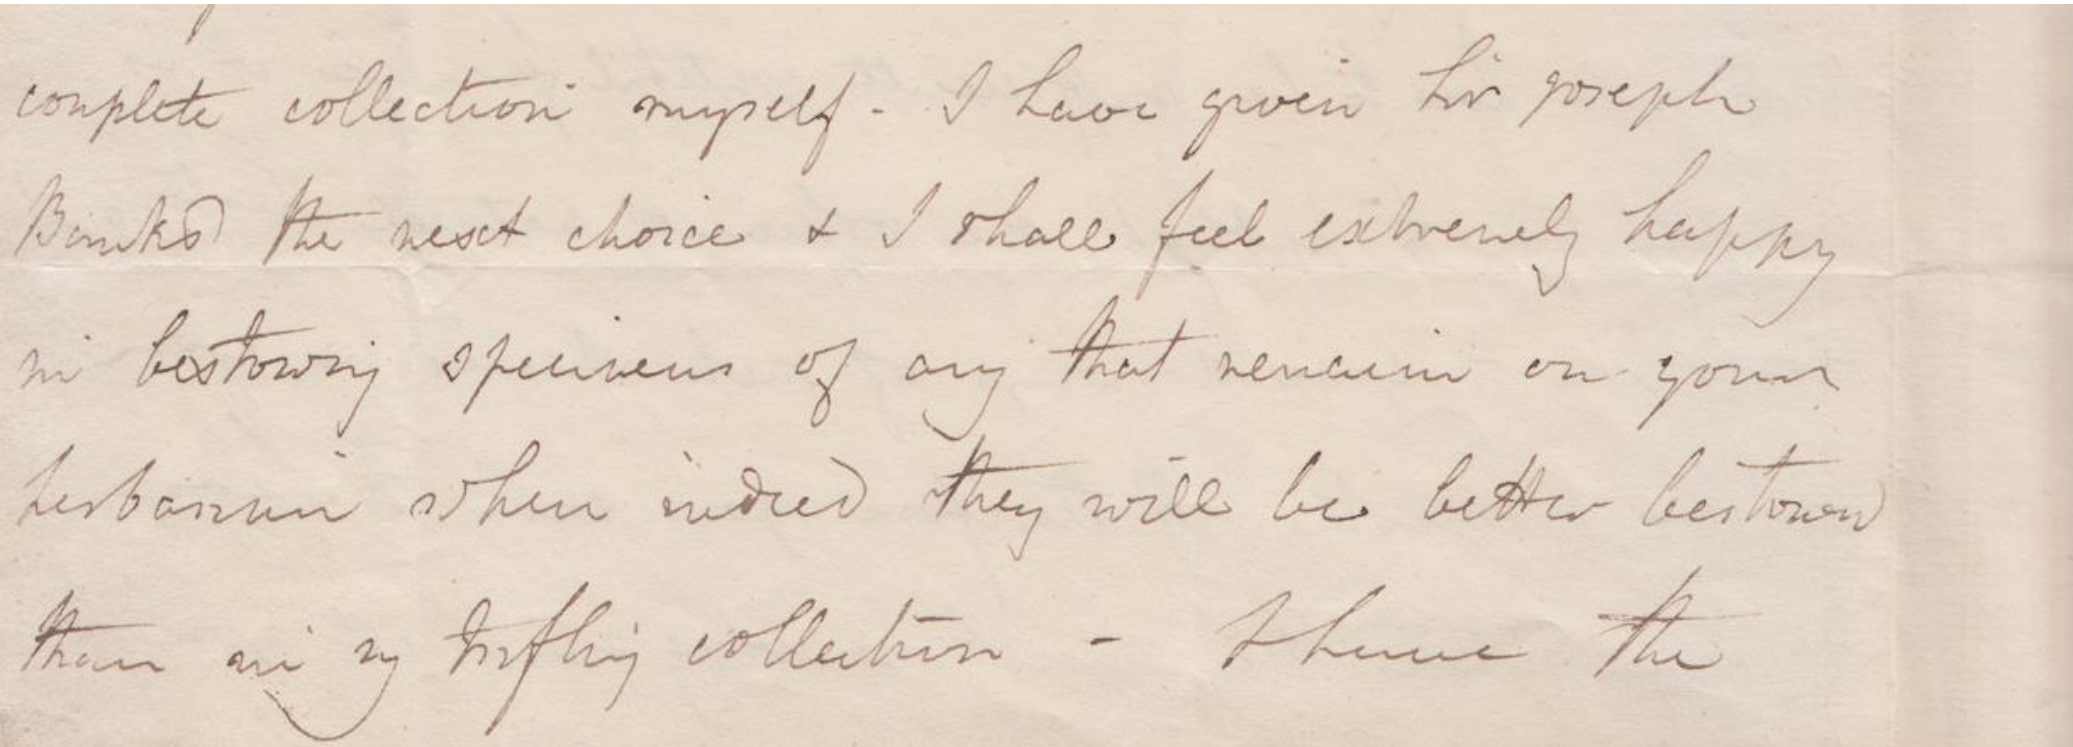 complete collection myself - I have given Sir Joseph
Banks the next choice & I shall feel extremely happy
in bestowing specimens of any that remain on your
herbarium when indeed they will be better bestowed
than in my trifling collection - I have the